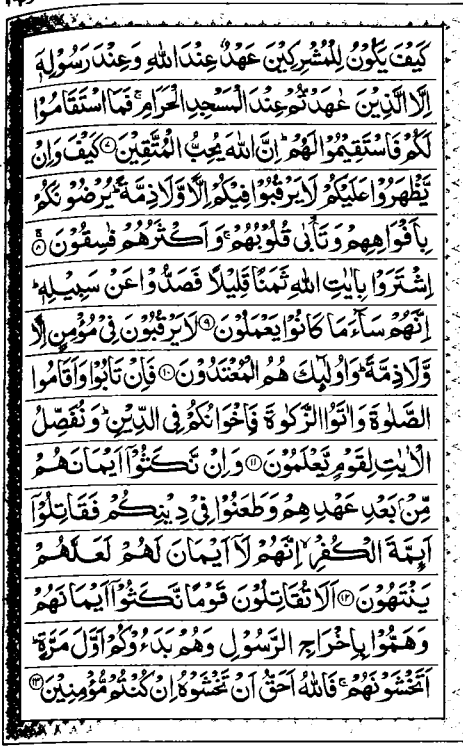 كَيْفَ يَكُوْنُ لِلْمُشْرِكِيْنَ عَهْدٌ عِنْدَ اللّٰهِ وَعِنْدَ رَسُوْلِهٖۤ
اِلَّا الَّذِيْنَ عٰهَدْتُّمْ عِنْدَ الْمَسْجِدِ الْحَرَامِ ۚ فَمَا اسْتَقَامُوْا
لَكُمْ فَاسْتَقِيْمُوْا لَهُمْ ؕ اِنَّ اللّٰهَ يُحِبُّ الْمُتَّقِيْنَ ۷ كَيْفَ وَاِنْ
يَّظْهَرُوْا عَلَيْكُمْ لَا يَرْقُبُوْا فِيْكُمْ اِلًّا وَّلَا ذِمَّةً ؕ يُرْضُوْنَكُمْ
بِاَفْوَاهِهِمْ وَتَاْبٰى قُلُوْبُهُمْ ۚ وَاَكْثَرُهُمْ فٰسِقُوْنَ ۸
اِشْتَرَوْا بِاٰيٰتِ اللّٰهِ ثَمَنًا قَلِيْلًا فَصَدُّوْا عَنْ سَبِيْلِهٖ ؕ
اِنَّهُمْ سَآءَ مَا كَانُوْا يَعْمَلُوْنَ ۹ لَا يَرْقُبُوْنَ فِيْ مُؤْمِنٍ اِلًّا
وَّلَا ذِمَّةً ؕ وَاُولٰٓئِكَ هُمُ الْمُعْتَدُوْنَ ۱۰ فَاِنْ تَابُوْا وَاَقَامُوا
الصَّلٰوةَ وَاٰتَوُا الزَّكٰوةَ فَاِخْوَانُكُمْ فِي الدِّيْنِ ؕ وَنُفَصِّلُ
الْاٰيٰتِ لِقَوْمٍ يَّعْلَمُوْنَ ۱۱ وَاِنْ نَّكَثُوْۤا اَيْمَانَهُمْ
مِّنْۢ بَعْدِ عَهْدِهِمْ وَطَعَنُوْا فِيْ دِيْنِكُمْ فَقَاتِلُوْۤا
اَىِٕمَّةَ الْكُفْرِ ۙ اِنَّهُمْ لَاۤ اَيْمَانَ لَهُمْ لَعَلَّهُمْ
يَنْتَهُوْنَ ۱۲ اَلَا تُقَاتِلُوْنَ قَوْمًا نَّكَثُوْۤا اَيْمَانَهُمْ
وَهَمُّوْا بِاِخْرَاجِ الرَّسُوْلِ وَهُمْ بَدَءُوْكُمْ اَوَّلَ مَرَّةٍ ؕ
اَتَخْشَوْنَهُمْ ۚ فَاللّٰهُ اَحَقُّ اَنْ تَخْشَوْهُ اِنْ كُنْتُمْ مُّؤْمِنِيْنَ ۱۳